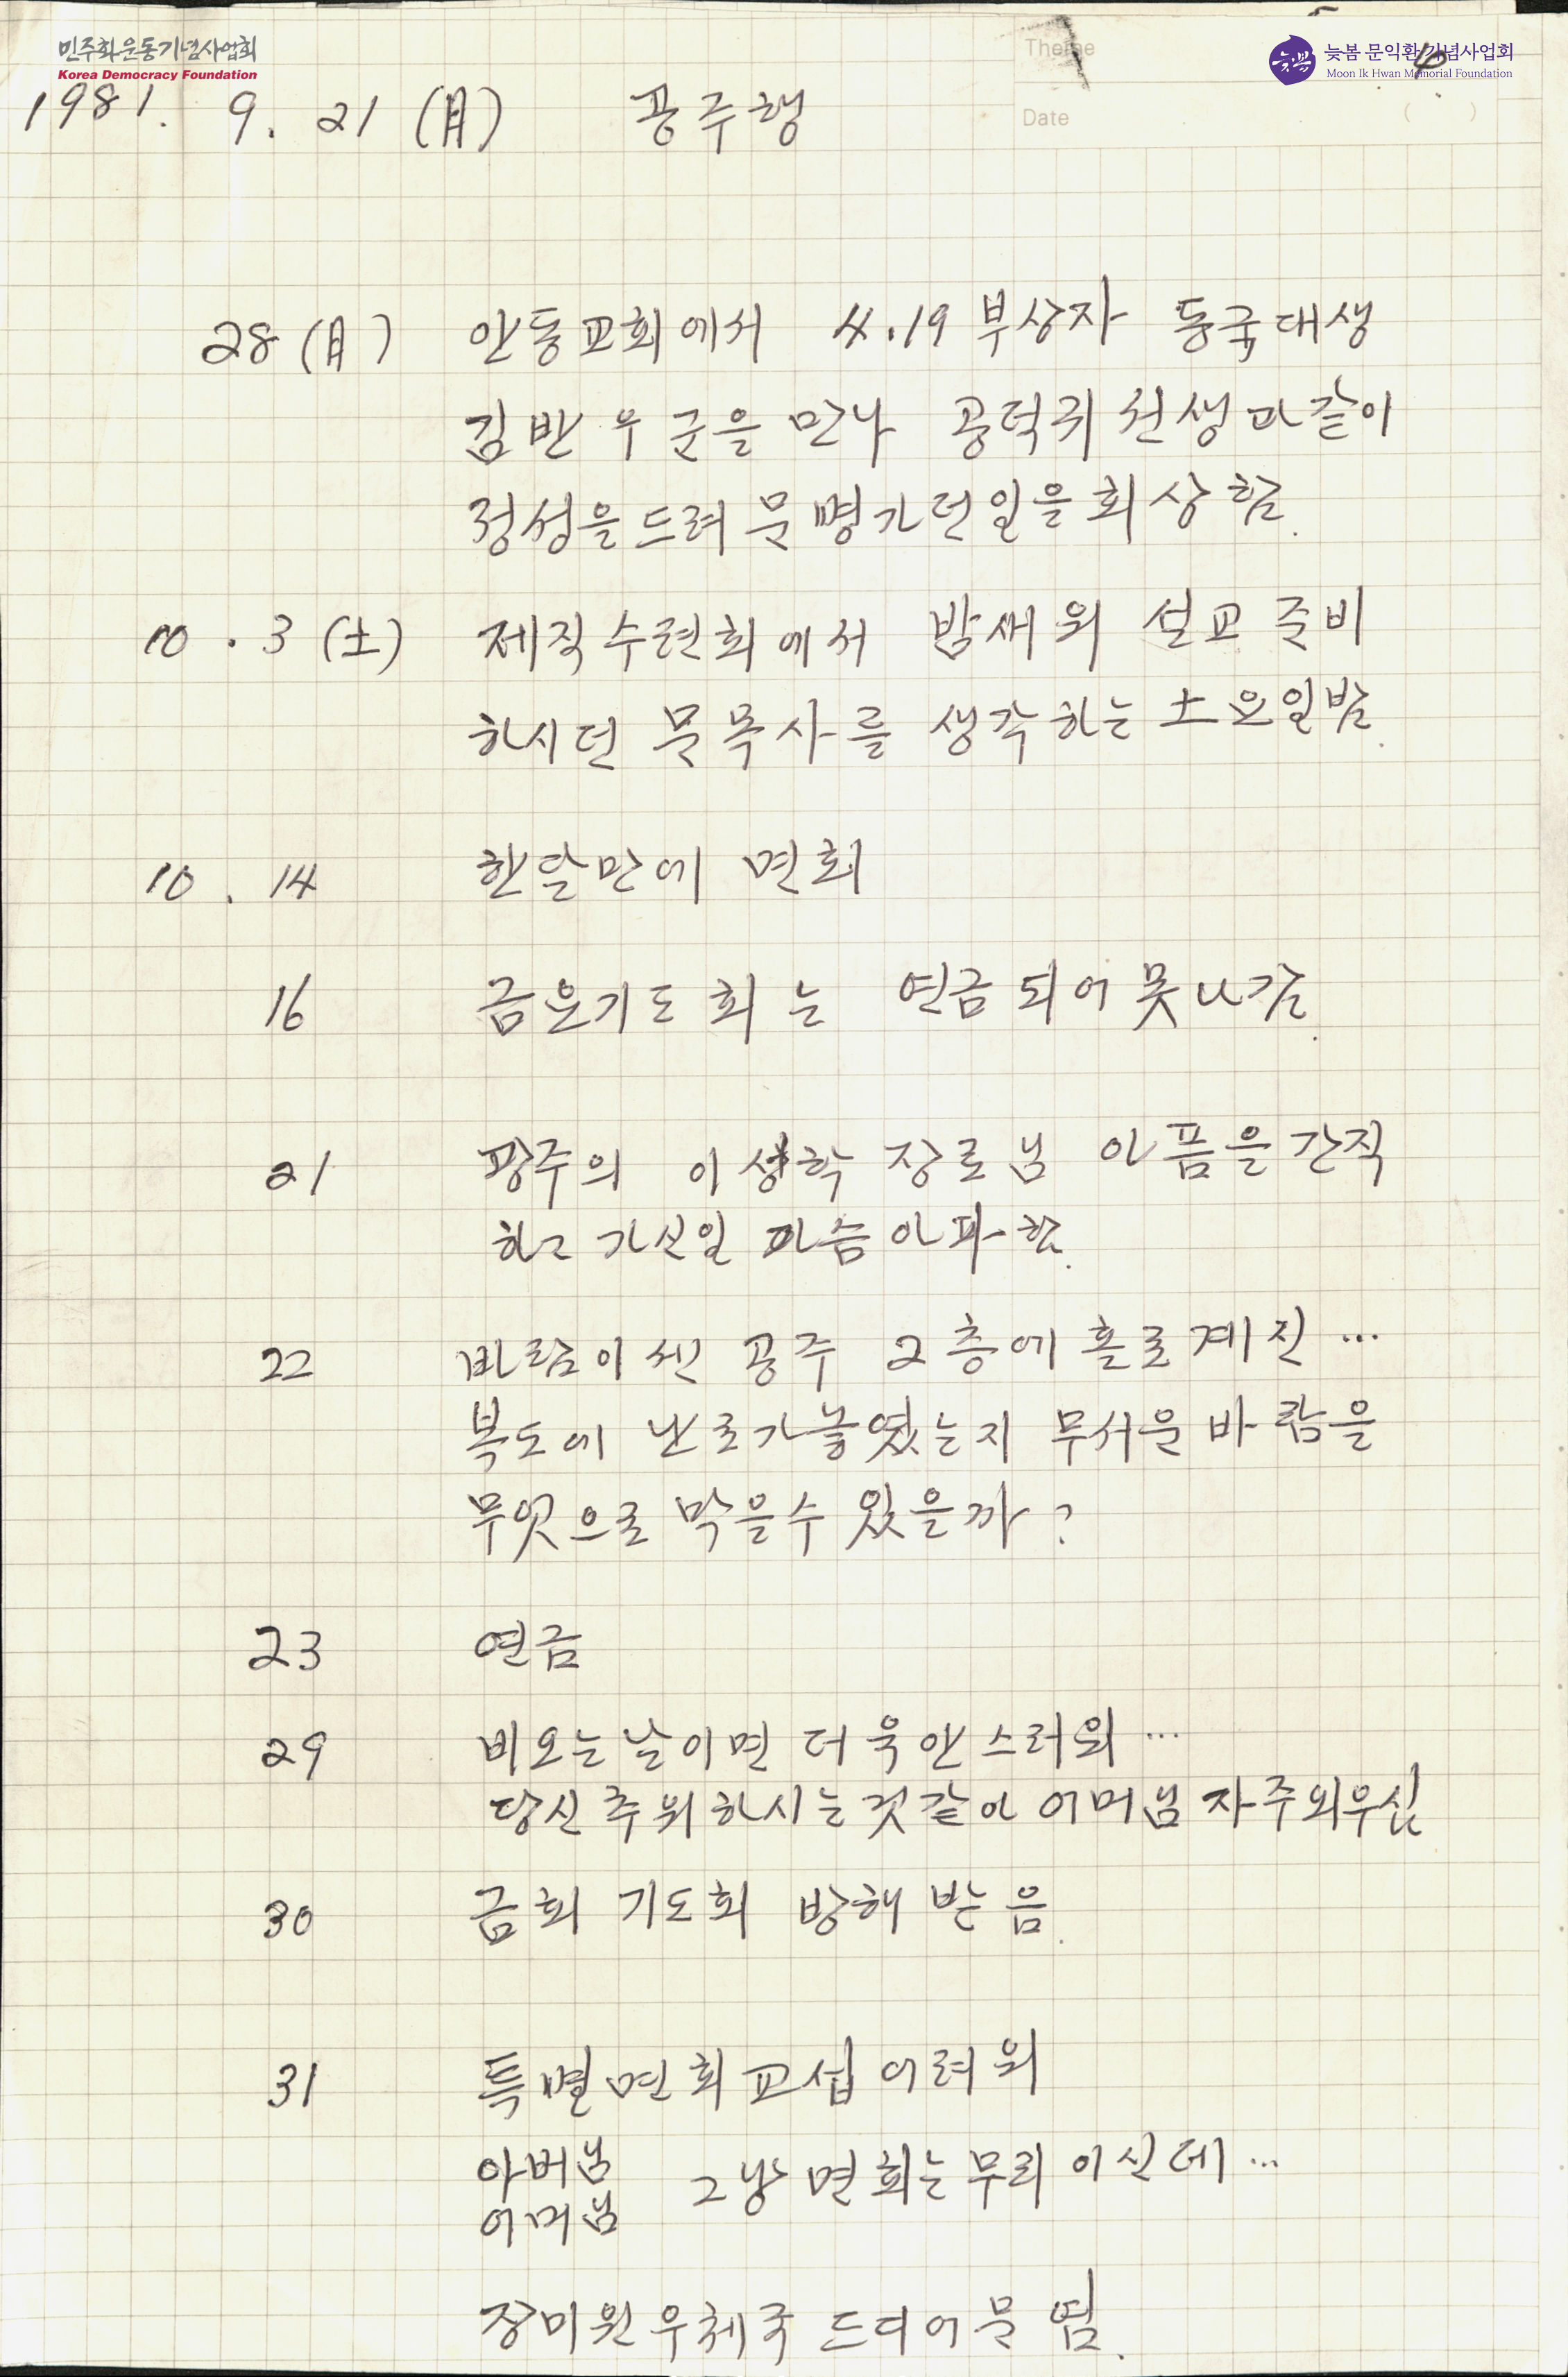 민주화운동기념사업회
Korea Democracy Foundation
늦봄 문익환 기념사업회
Moon Ik Hwan Memorial Foundation
Theme
Date ( )
1981. 9. 21 (月) 공주행
28 (月) 안동교회에서 4.19 부상자 동국대생
김반우군을 만나 공덕귀 선생과같이
정성을드려 문병가던일을 회상함.
10. 3 (土) 제직수련회에서 밤쌔워 설교준비
하시던 문목사를 생각하는 土요일밤.
10. 14 한달만에 면회
16 금요기도회는 연금되어 못나감.
21 광주의 이성학 장로님 아픔을 간직
하고 가신일 마슴아파함.
22 바람이 센 공주 2층에 홀로계진 …
복도에 난로가놓였는지 무서운 바람을
무엇으로 막을수 있을까?
23 연금
29 비오는날이면 더욱안스러워 …
당신추위하시는것같아 어머님 자주외우심
30 금회 기도회 방해받음.
31 특별면회교섭어려워
아버님
어머님 그냥 면회는무리이신데 …
장미원우체국 드디어문엶.